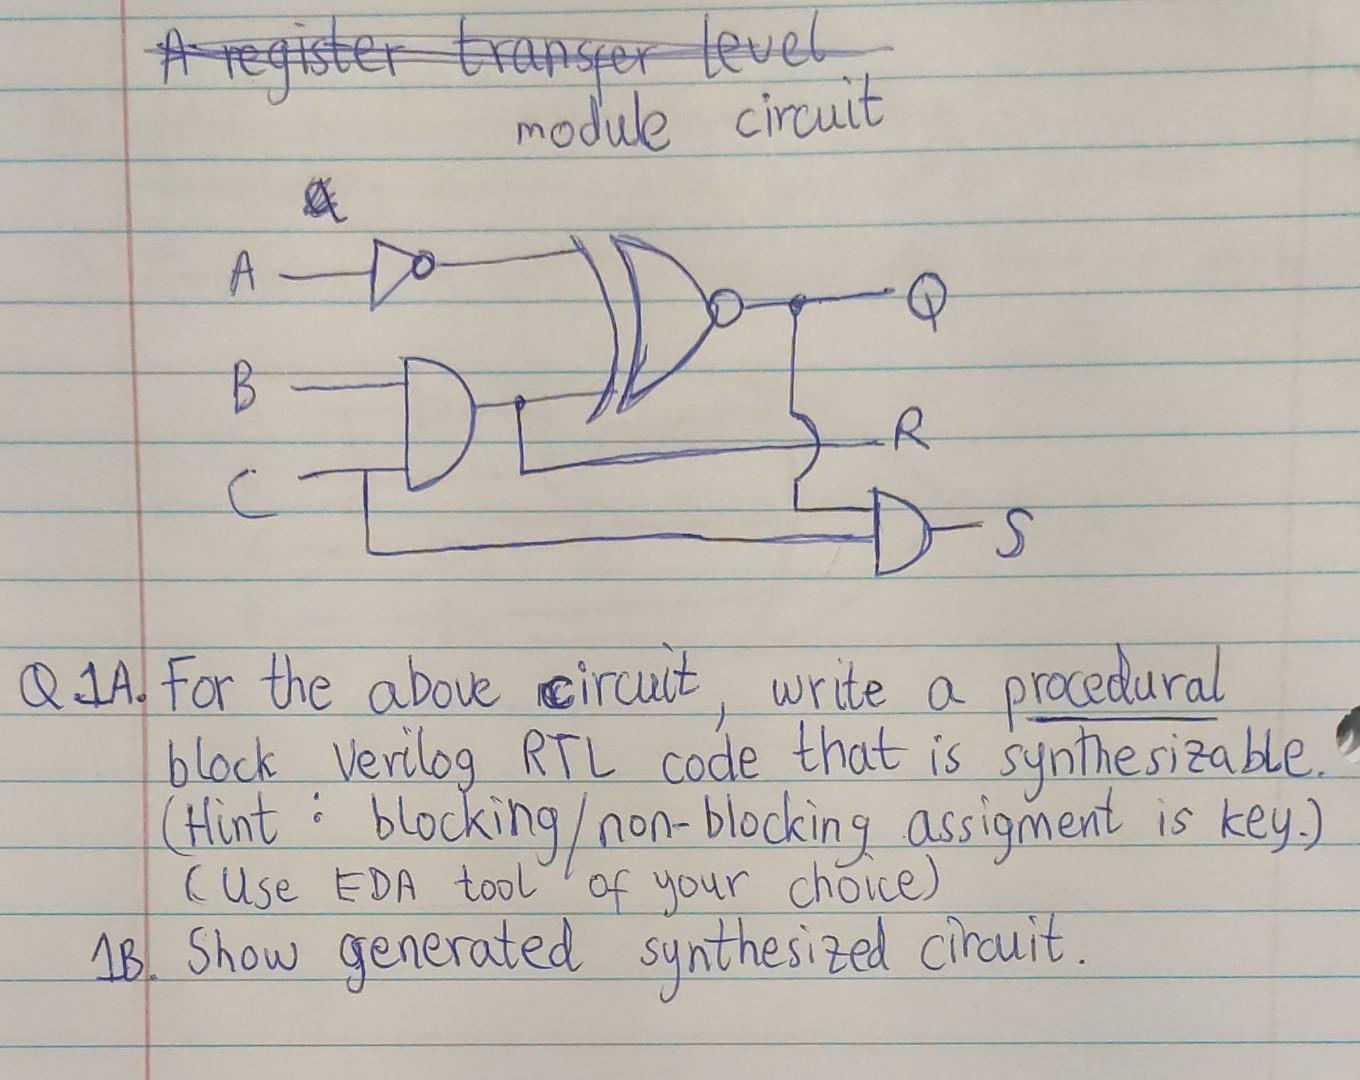 A register transfer level
module circuit
A
Q
B
R
C
S
Q.1A. For the above circuit, write a procedural
block Verilog RTL code that is synthesizable.
(Hint : blocking/non-blocking assigment is key.)
(Use EDA tool of your choice)
1B. Show generated synthesized circuit.